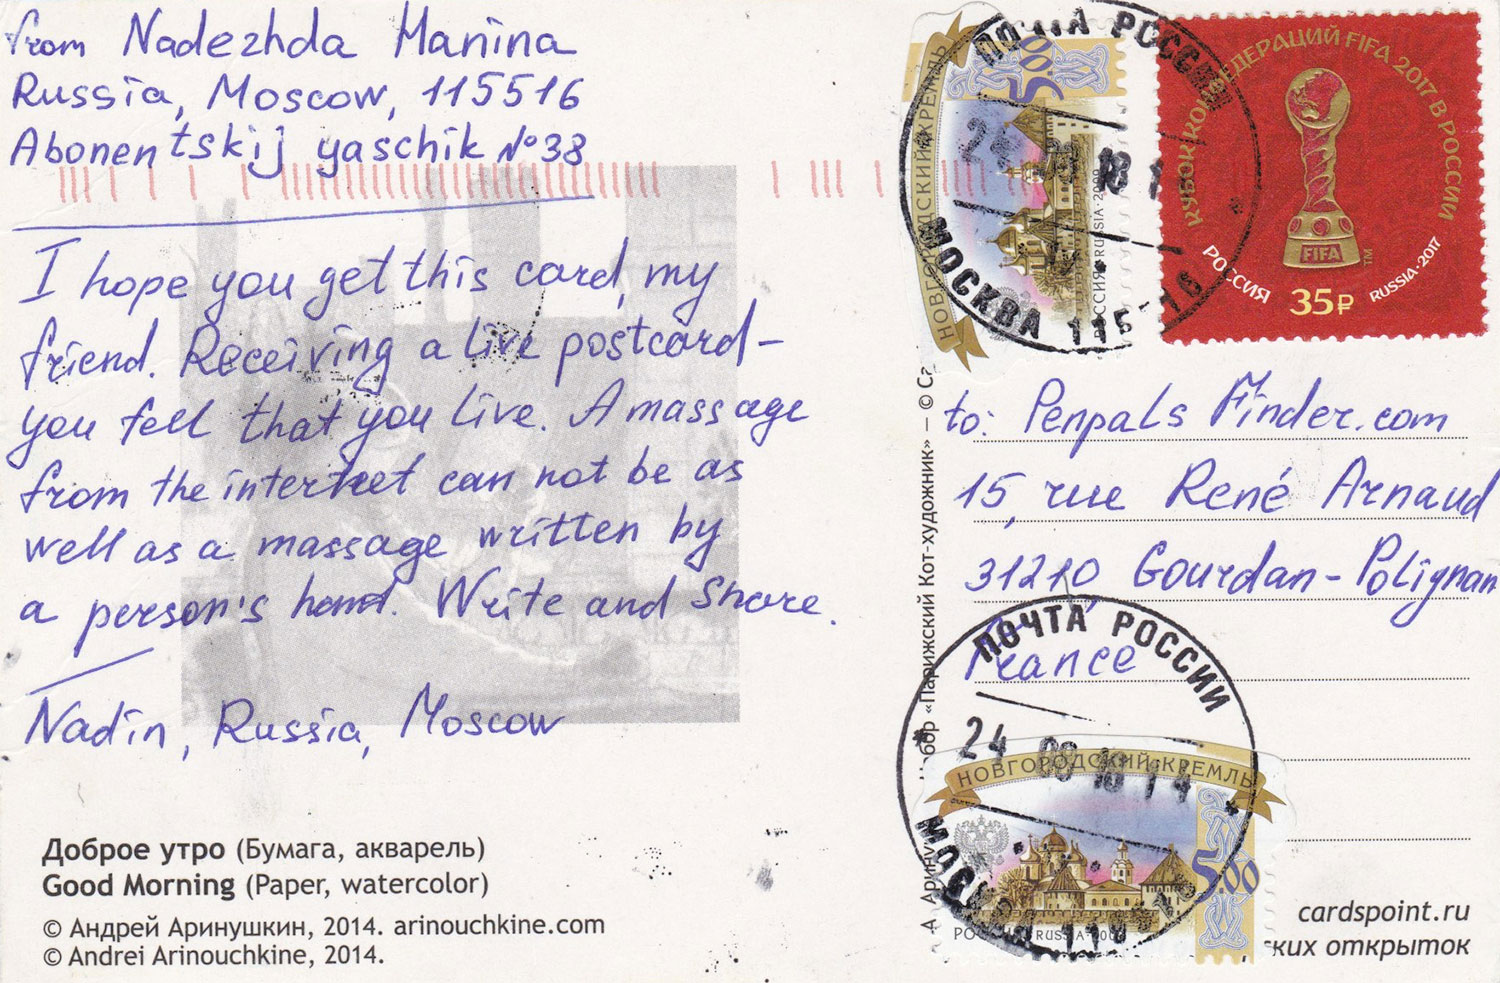 from Nadezhda Manina
Russia, Moscow, 115516
Abonentskij yaschik №38
I hope you get this card, my
friend. Receiving a live postcard –
you fell that you live. A massage
from the internet can not be as
well as a massage written by
a person's hand. Write and Share.
Nadin, Russia, Moscow
Доброе утро (Бумага, акварель)
Good Morning (Paper, watercolor)
© Андрей Аринушкин, 2014. arinouchkine.com
© Andrei Arinouchkine, 2014.
«Парижский Кот-художник» – ©
ПОЧТА РОССИИ
МОСКВА 115516
НОВГОРОДСКИЙ КРЕМЛЬ
5.00
РОССИЯ RUSSIA·2009
КУБОК КОНФЕДЕРАЦИЙ FIFA 2017 В РОССИИ
FIFA
TM
РОССИЯ 35₽ RUSSIA·2017
to: Penpals Finder.com
15, rue René Arnaud
31210, Gourdan-Polignan
France
ПОЧТА РОССИИ
24 08 18 14
МОСКВА
НОВГОРОДСКИЙ КРЕМЛЬ
5.00
RUSSIA·2009
cardspoint.ru
открыток